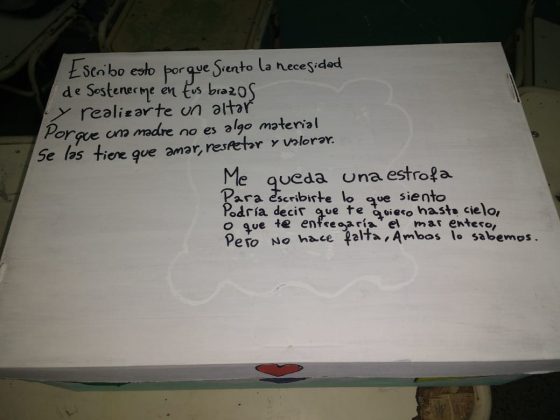 Escribo esto porque siento la necesidad
de sostenerme en tus brazos
y realizarte un altar
Porque una madre no es algo material
Se las tiene que amar, respetar y valorar.
Me queda una estrofa
Para escribirte lo que siento
Podría decir que te quiero hasta cielo,
o que te entregaría el mar entero,
Pero no hace falta, Ambos lo sabemos.